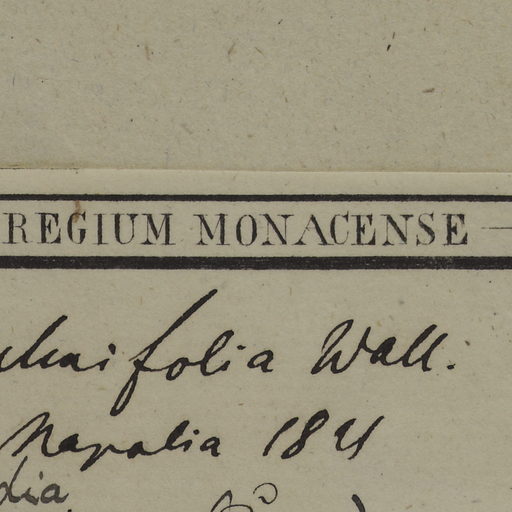 REGIUM MONACENSE
folia Wall.
Napalia 1821
dia